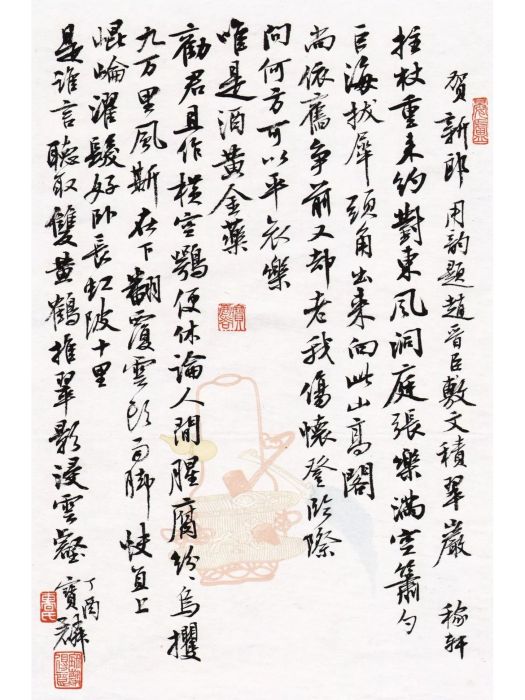 賀新郎用韵題趙晋臣敷文積翠巖 稼軒
拄杖重来約對東風洞庭張樂滿空簫勺
巨海拔犀頭角出来向此山高閣
尚依舊争前又却老我傷懷登临際
問何方可以平哀樂
唯是酒黄金藥
勸君且作横空鶚便休論人間腥腐纷々烏攫
九万里風斯在下翻覆雲头雨脚快直上
崐崘濯髮好卧長虹陂十里
是谁言聽取雙黄鶴推翠影浸雲壑
丁酉
寶麟